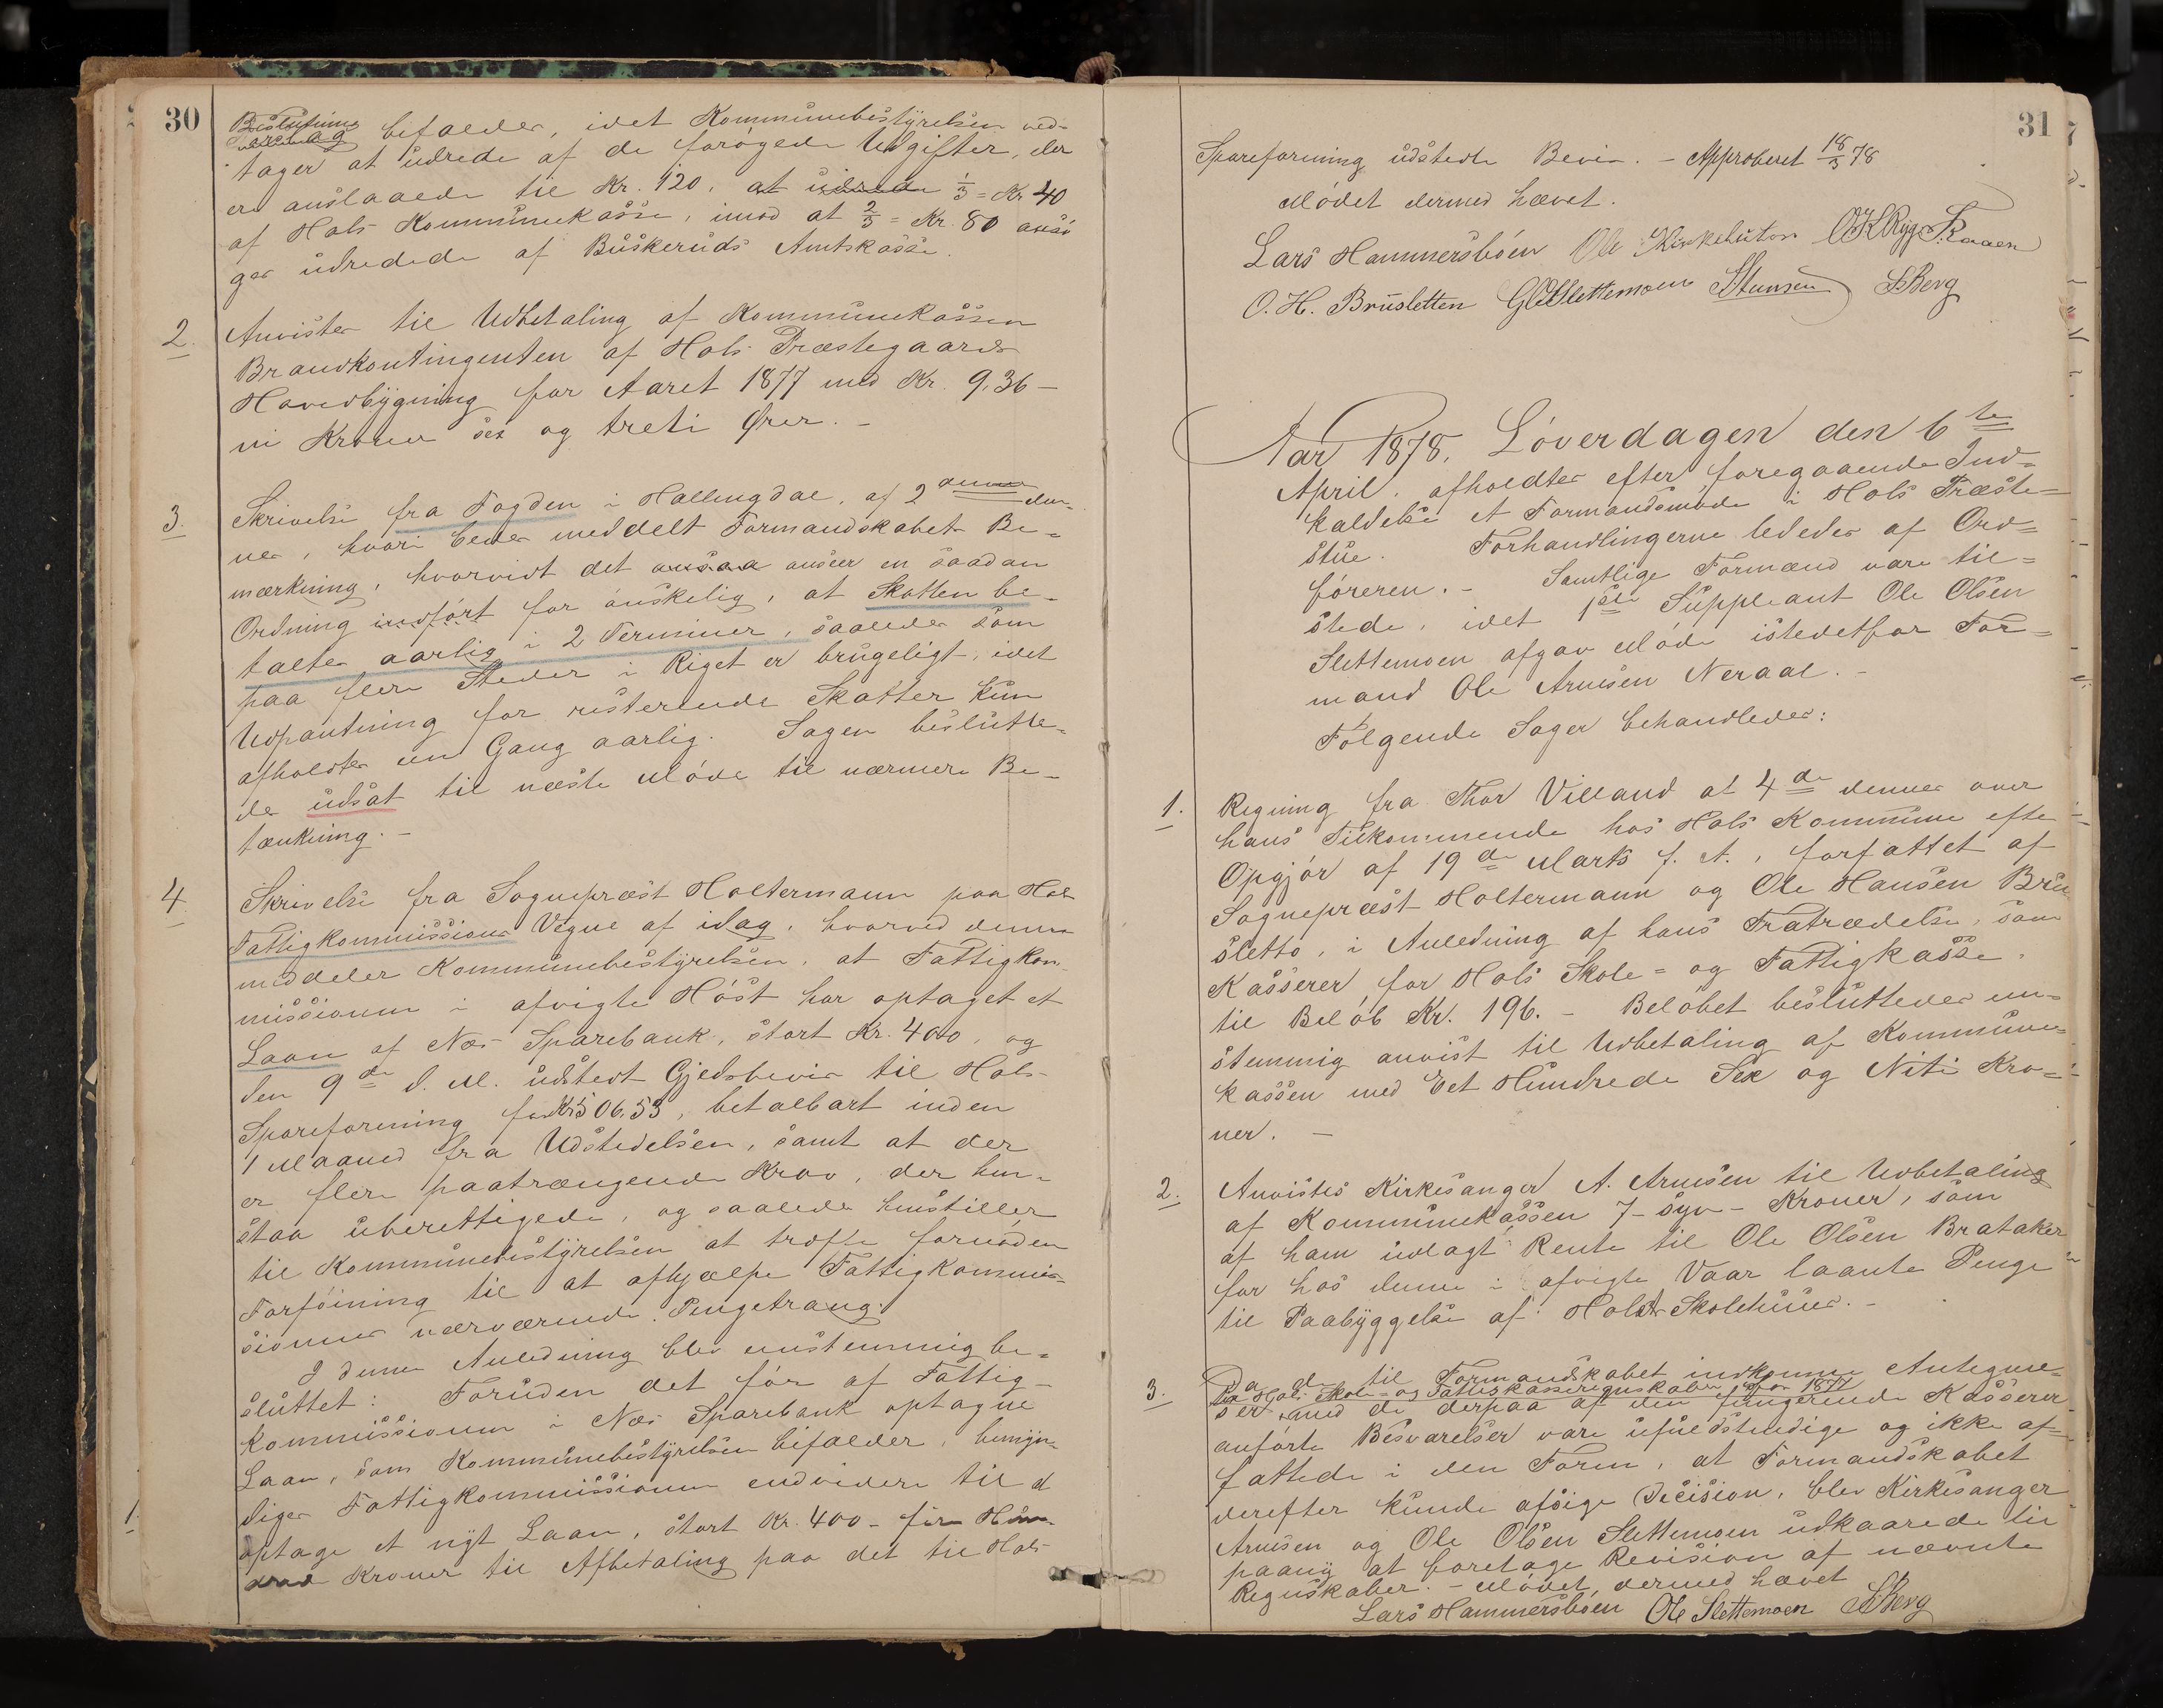 30
Beslutning bifaldes, idet Kommunebestyrelsen ved-
tager at udrede af de forøgede Udgifter, der
ere anslaaede til Kr. 120, at udrede 1/3 = Kr 40
af Hols Kommunekasse, imod at 2/3 = Kr. 80 ansø
ges udredede af Buskeruds Amtskasse.
2. Anvistes til Udbetaling af Kommunekassen
Brandkontingenten af Hols Præstegaards
Hovedbygning for Aaret 1877 med Kr. 9,36 –
ni Kroner sex og treti Ører. –
3. Skrivelse fra Fogden i Hallingdal, af 2den den-
nes, hvori bedes meddelt Formandskabets Be-
mærkning, hvorvidt det ansaa anseer en saadan
Ordning indført for ønskelig, at Skatten be-
tales aarlig i 2 Terminer, saaledes som
paa flere Steder i Riget er brugeligt, idet
Udpantning for resterende Skatter kun
afholdtes en Gang aarlig. Sagen beslutte-
des udsat til næste Møde til nærmere Be-
tænkning. –
4. Skrivelse fra Sognepræst Holtermann paa Hols
Fattigkommissions Vegne af idag, hvorved denne
meddeler Kommunebestyrelsen, at Fattigkom-
missionen i afvigte Høst har optaget et
Laan af Nes Sparebank, stort Kr. 400, og
den 9de d. M. udstedt Gjeldsbevis til Hols
Spareforening for Kr 506.53, betalbart inden
1 Maaned fra Udstedelsen, samt at der
er flere paatrængende Krav, der hen-
staa uberettigede, og saaledes henstiller
til Kommunebestyrelsen at træffe fornøden
Forføining til at afhjælpe Fattigkommis-
sionens nærværende Pengetrang.
I denne Anledning blev enstemmig be-
sluttet: Foruden det før af Fattig-
kommissionen i Nes Sparebank optagne
Laan, som Kommunebestyrelsen bifalder, bemyn-
diges Fattigkommissionen endvidere til at
optage et nyt Laan, stort Kr. 400 – fire Hun-
drede Kroner til Afbetaling paa det til Hols
31
Spareforening udstedte Bevis. – Approberet 18/5 78
Mødet dermed hævet.
Lars Hammersbøen Ole Kirkebuton OKRygg Raaen
O. H. Brusletten GOSlettemoen STunsen SBerg
Aar 1878, Løverdagen den 6te
April, afholdtes efter foregaaende Ind-
kaldelse et Formandsmøde i Hols Præste-
stue. Forhandlingerne lededes af Ord-
føreren. – Samtlige Formænd vare til-
stede, idet 1ste Suppleant Ole Olsen
Slettemoen afgav Møde istedetfor For-
mand Ole Arnesen Neraal. –
Følgende Sager behandledes:
1. Regning fra Thor Villand af 4de dennes over
hans Tilkommende hos Hols Kommune efter
Opgjør af 19de Marts f. A., forfattet af
Sognepræst Holtermann og Ole Hansen Bru
sletto, i Anledning af hans Fratrædelse, som
Kasserer for Hols Skole- og Fattigkasse,
til Beløb Kr. 196. – Beløbet besluttedes en-
stemmig anvist til Udbetaling af Kommune-
kassen med Eet Hundrede Sex og Niti Kro-
ner. –
2. Anvistes Kirkesanger A. Arnesen til Udbetaling
af Kommunekassen 7 – syv – Kroner, som
af ham udlagt Rente til Ole Olsen Brataker
for hos denne i afvigte Vaar laante Penge
til Paabyggelse af Hols Skolehuus. –
3. Da de til Formandskabet indkomne Antegnel-
ser til Hols Skole- og Fattigkasseregnskaber for 1877
med de derpaa af den fungerende Kasserer
anførte Besvarelser vare ufuldstændige og ikke af-
fattede i den Form, at Formandskabet
derefter kunde afsige Decision, blev Kirkesanger
Arnesen og Ole Olsen Slettemoen udkaarede til
paany at foretage Revision af nævnte
Regnskaber. – Mødet dermed hævet
Lars Hammersbøen Ole Slettemoen SBerg